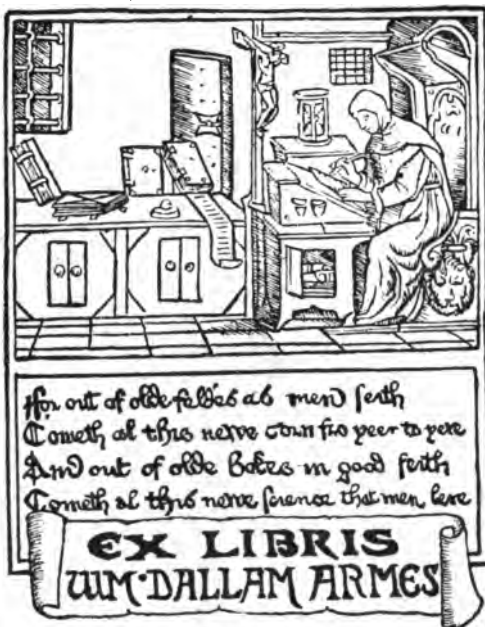 ffor out of olde feldes as men seith
Cometh al this newe corn fro yeer to yere
And out of olde bokes in good feith
Cometh al this newe science that men lere
EX LIBRIS
WM·DALLAM ARMES